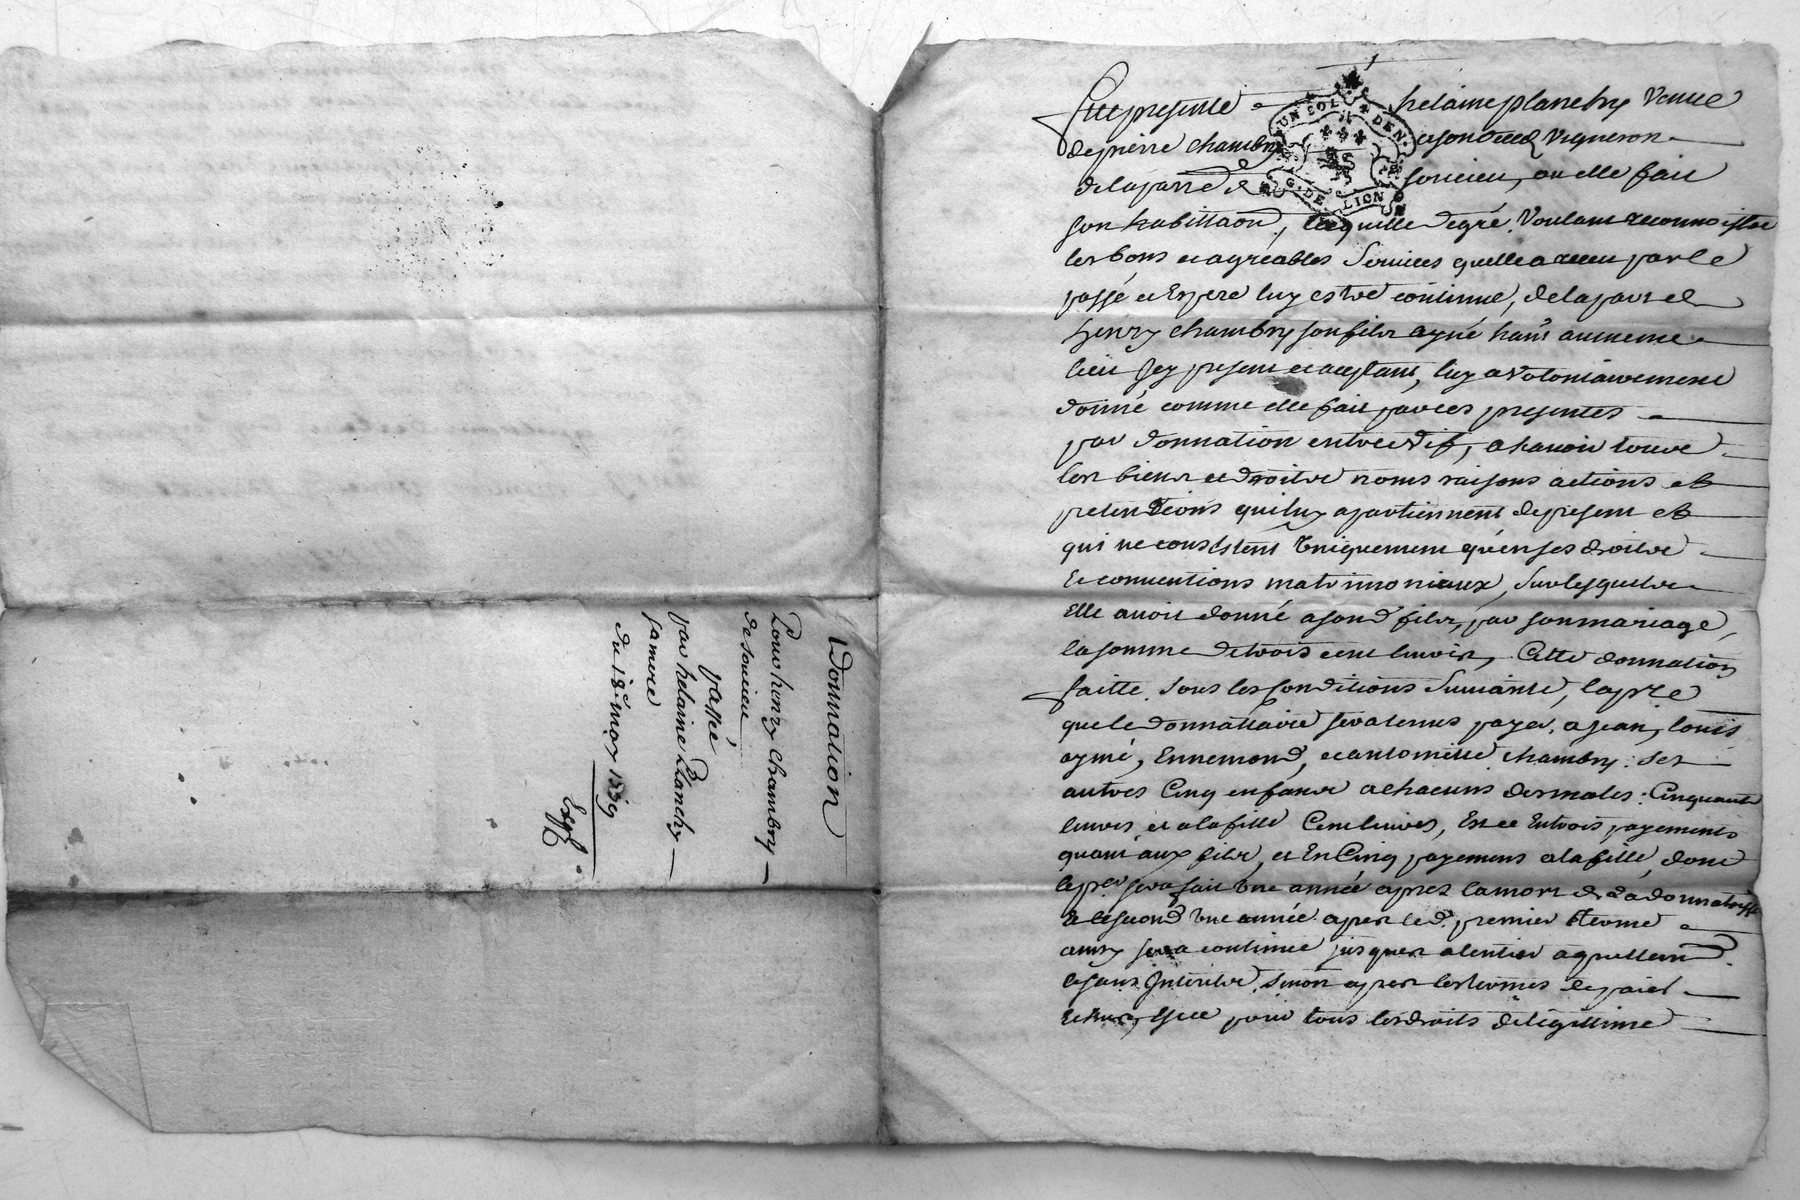 Donnation
Pour henry Chambry
de soucieu
passée
par helaine Planchy
sa mere
du 18e may 1739
Expe
1
UN SOL DEN.
G. DE LION
Fut presente helaine planchy Veuve
de pierre chambry vigneron
de la parre de soucieu, ou elle fait
son habittaon, laquelle de gré, Voulant reconnoistre
les bons et agréables Services quelle a receu par le
passé et Espere luy estre continué, de la part de
henry chambry son fils ayné hant au meme
lieu Icy present et aceptant, luy a Volontairement
donné comme elle fait par ces presentes
par donnation entre vif, a Scavoir tous
les biens et droits noms raisons actions et
pretentions qui luy apartiennent de present et
qui ne consistent Uniquement qu'en ses droits
Et conventions matrimoniaux, Sur lesquels
Elle avoit donné a sond fils, par son mariage,
la somme de trois cent livres, Cette donnation
faitte Sous les Conditions Suivante,
que le donnattaire sera tenus payer, a jean, louis
aymé, Ennemond, et antoinette chambry Ses
autres Cinq enfans a chacuns des males Cinquante
livres et a la fille Cent livres, Et ce En trois payements
quant aux fils, et En Cinq payemens a la fille, dont
le per sera fait Une année apres la mort de la donnatrisse
Et le second Une année apres led premier terme
ainsy sera continué jusques a lentier aquittem
sans Interets, Sinon apres les termes de paiet
Echus, Et ce pour tous les droits de legittime